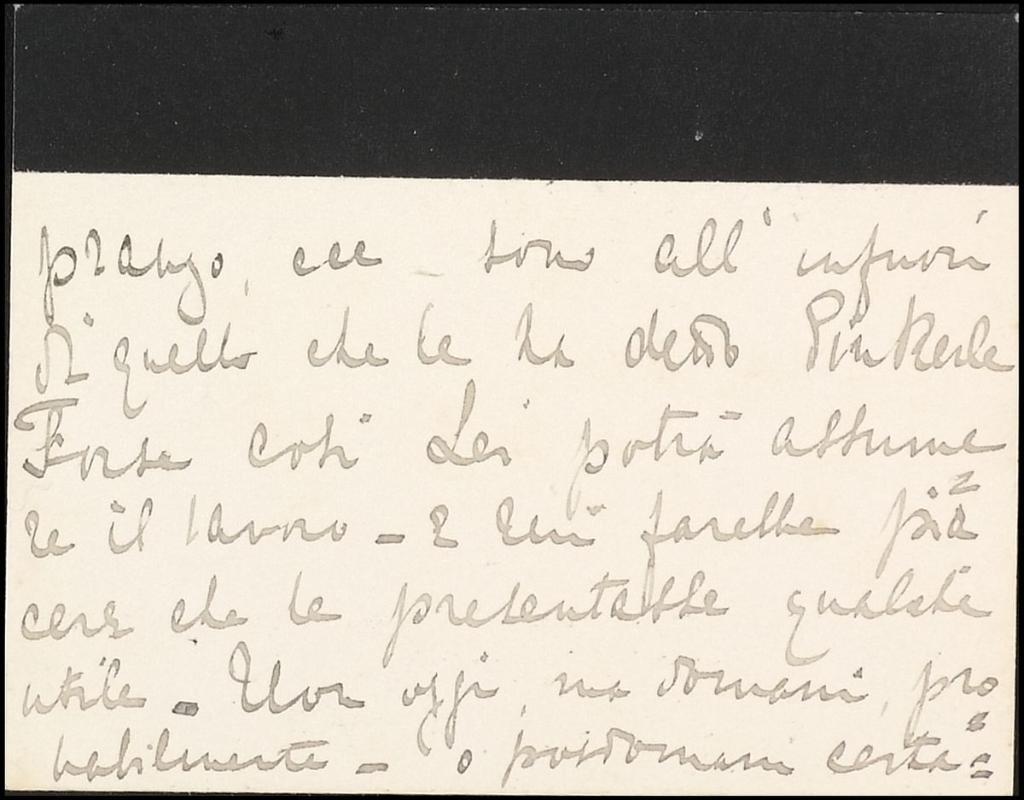 pranzo, ecc – sono all'infuori
di quello che le ha detto Pinkerle
Forse così Lei potrà assume
re il lavoro – e mi farebbe pia
cere che le presentasse qualche
utile – Non oggi, ma domani, pro
babilmente – o posdomani certa=